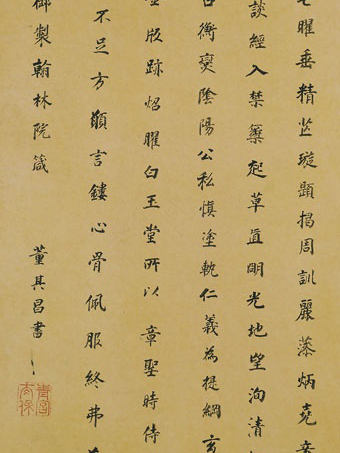 曜垂精芒璇題揭周訓麗藻炳堯
談經入禁籞起草直明光地望洵清
衡燮陰陽公私慎塗軌仁義為提綱
版跡炤曜白玉堂所以章聖時侍
不足方願言鏤心骨佩服終弗
御製翰林院箴
董其昌書